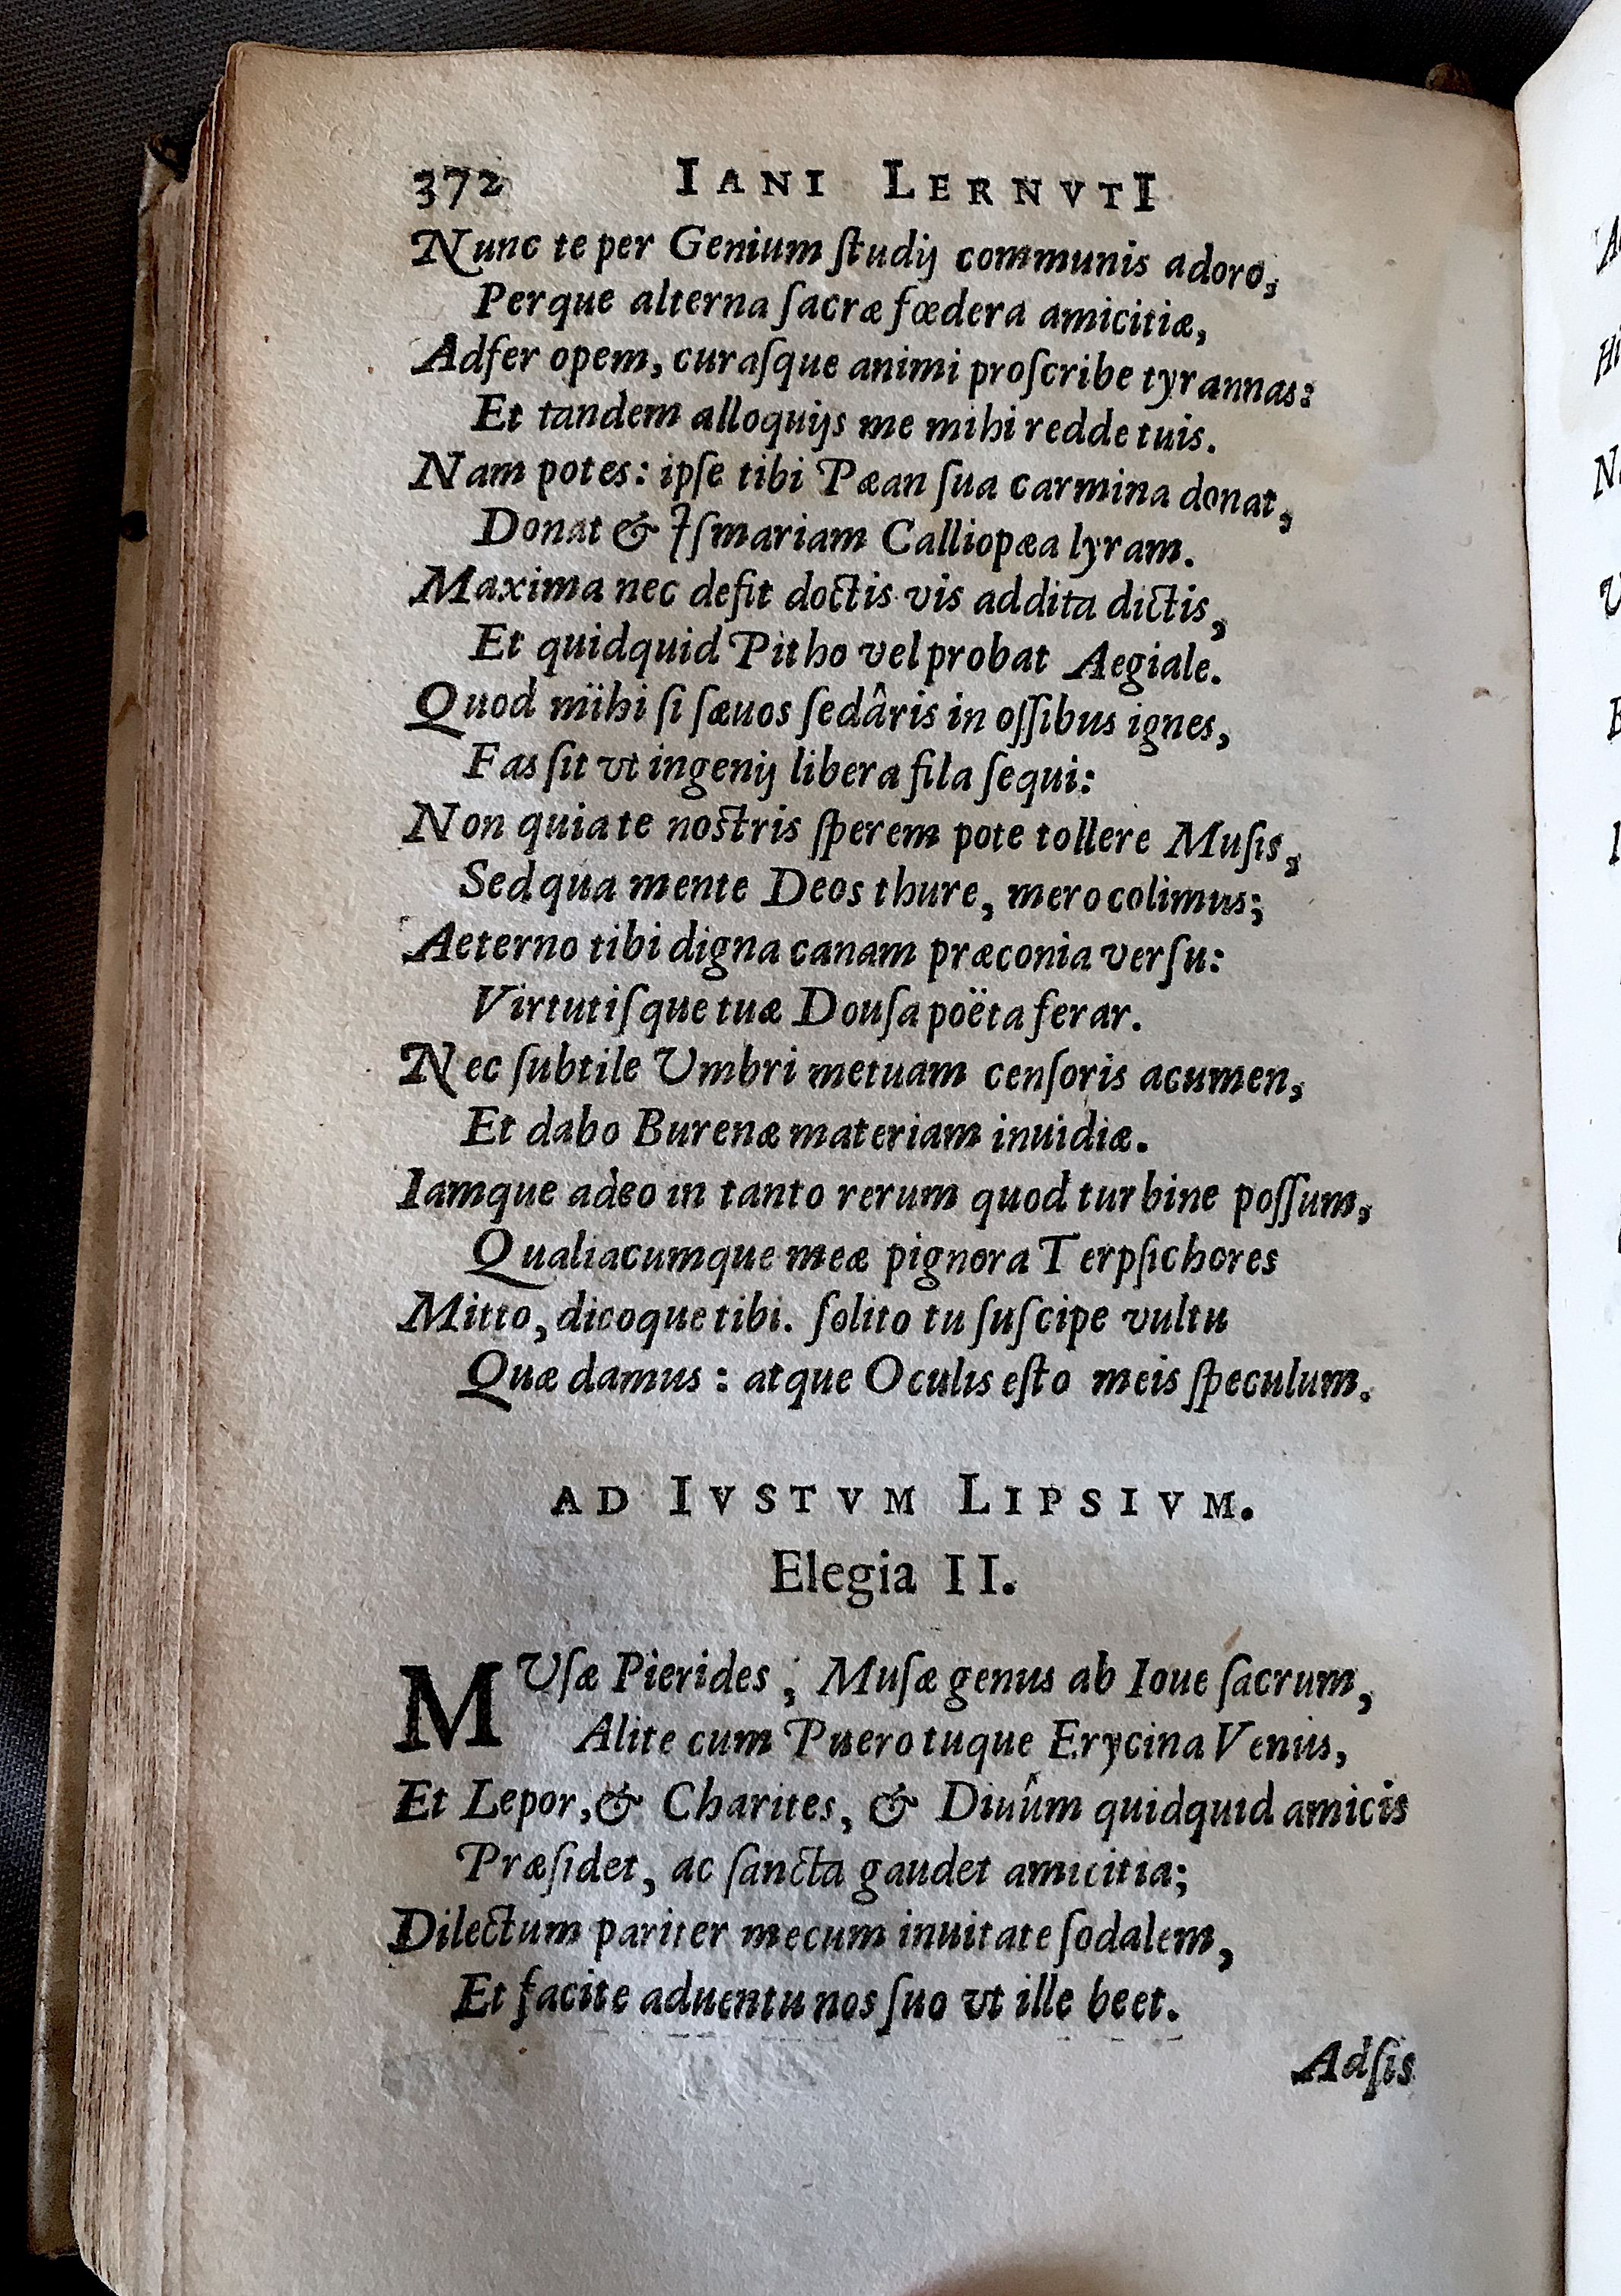 372 IANI LERNVTI
Nunc te per Genium ſtudij communis adoro,
Perque alterna ſacræ fœdera amicitiæ,
Adfer opem, curaſque animi proſcribe tyrannas:
Et tandem alloquijs me mihi redde tuis.
Nam potes: ipſe tibi Pæan ſua carmina donat,
Donat & Iſmariam Calliopæa lyram.
Maxima nec defit doctis vis addita dictis,
Et quidquid Pitho vel probat Aegiale.
Quod mihi ſi ſæuos ſedâris in oſſibus ignes,
Fas ſit vt ingenij libera fila ſequi:
Non quia te noſtris ſperem pote tollere Muſis,
Sed qua mente Deos thure, mero colimus;
Aeterno tibi digna canam præconia verſu:
Virtutiſque tuæ Douſa poëta ferar.
Nec ſubtile Umbri metuam cenſoris acumen,
Et dabo Burenæ materiam inuidiæ.
Iamque adeo in tanto rerum quod turbine poſſum,
Qualiacumque meæ pignora Terpſichores
Mitto, dicoque tibi. ſolito tu ſuſcipe vultu
Quæ damus: atque Oculis eſto meis ſpeculum.
AD IVSTVM LIPSIVM.
Elegia II.
MUſæ Pierides, Muſæ genus ab Ioue ſacrum,
Alite cum Puero tuque Erycina Venus,
Et Lepor, & Charites, & Diuûm quidquid amicis
Præſidet, ac ſancta gaudet amicitia;
Dilectum pariter mecum inuitate ſodalem,
Et facite aduentu nos ſuo vt ille beet.
Adſis